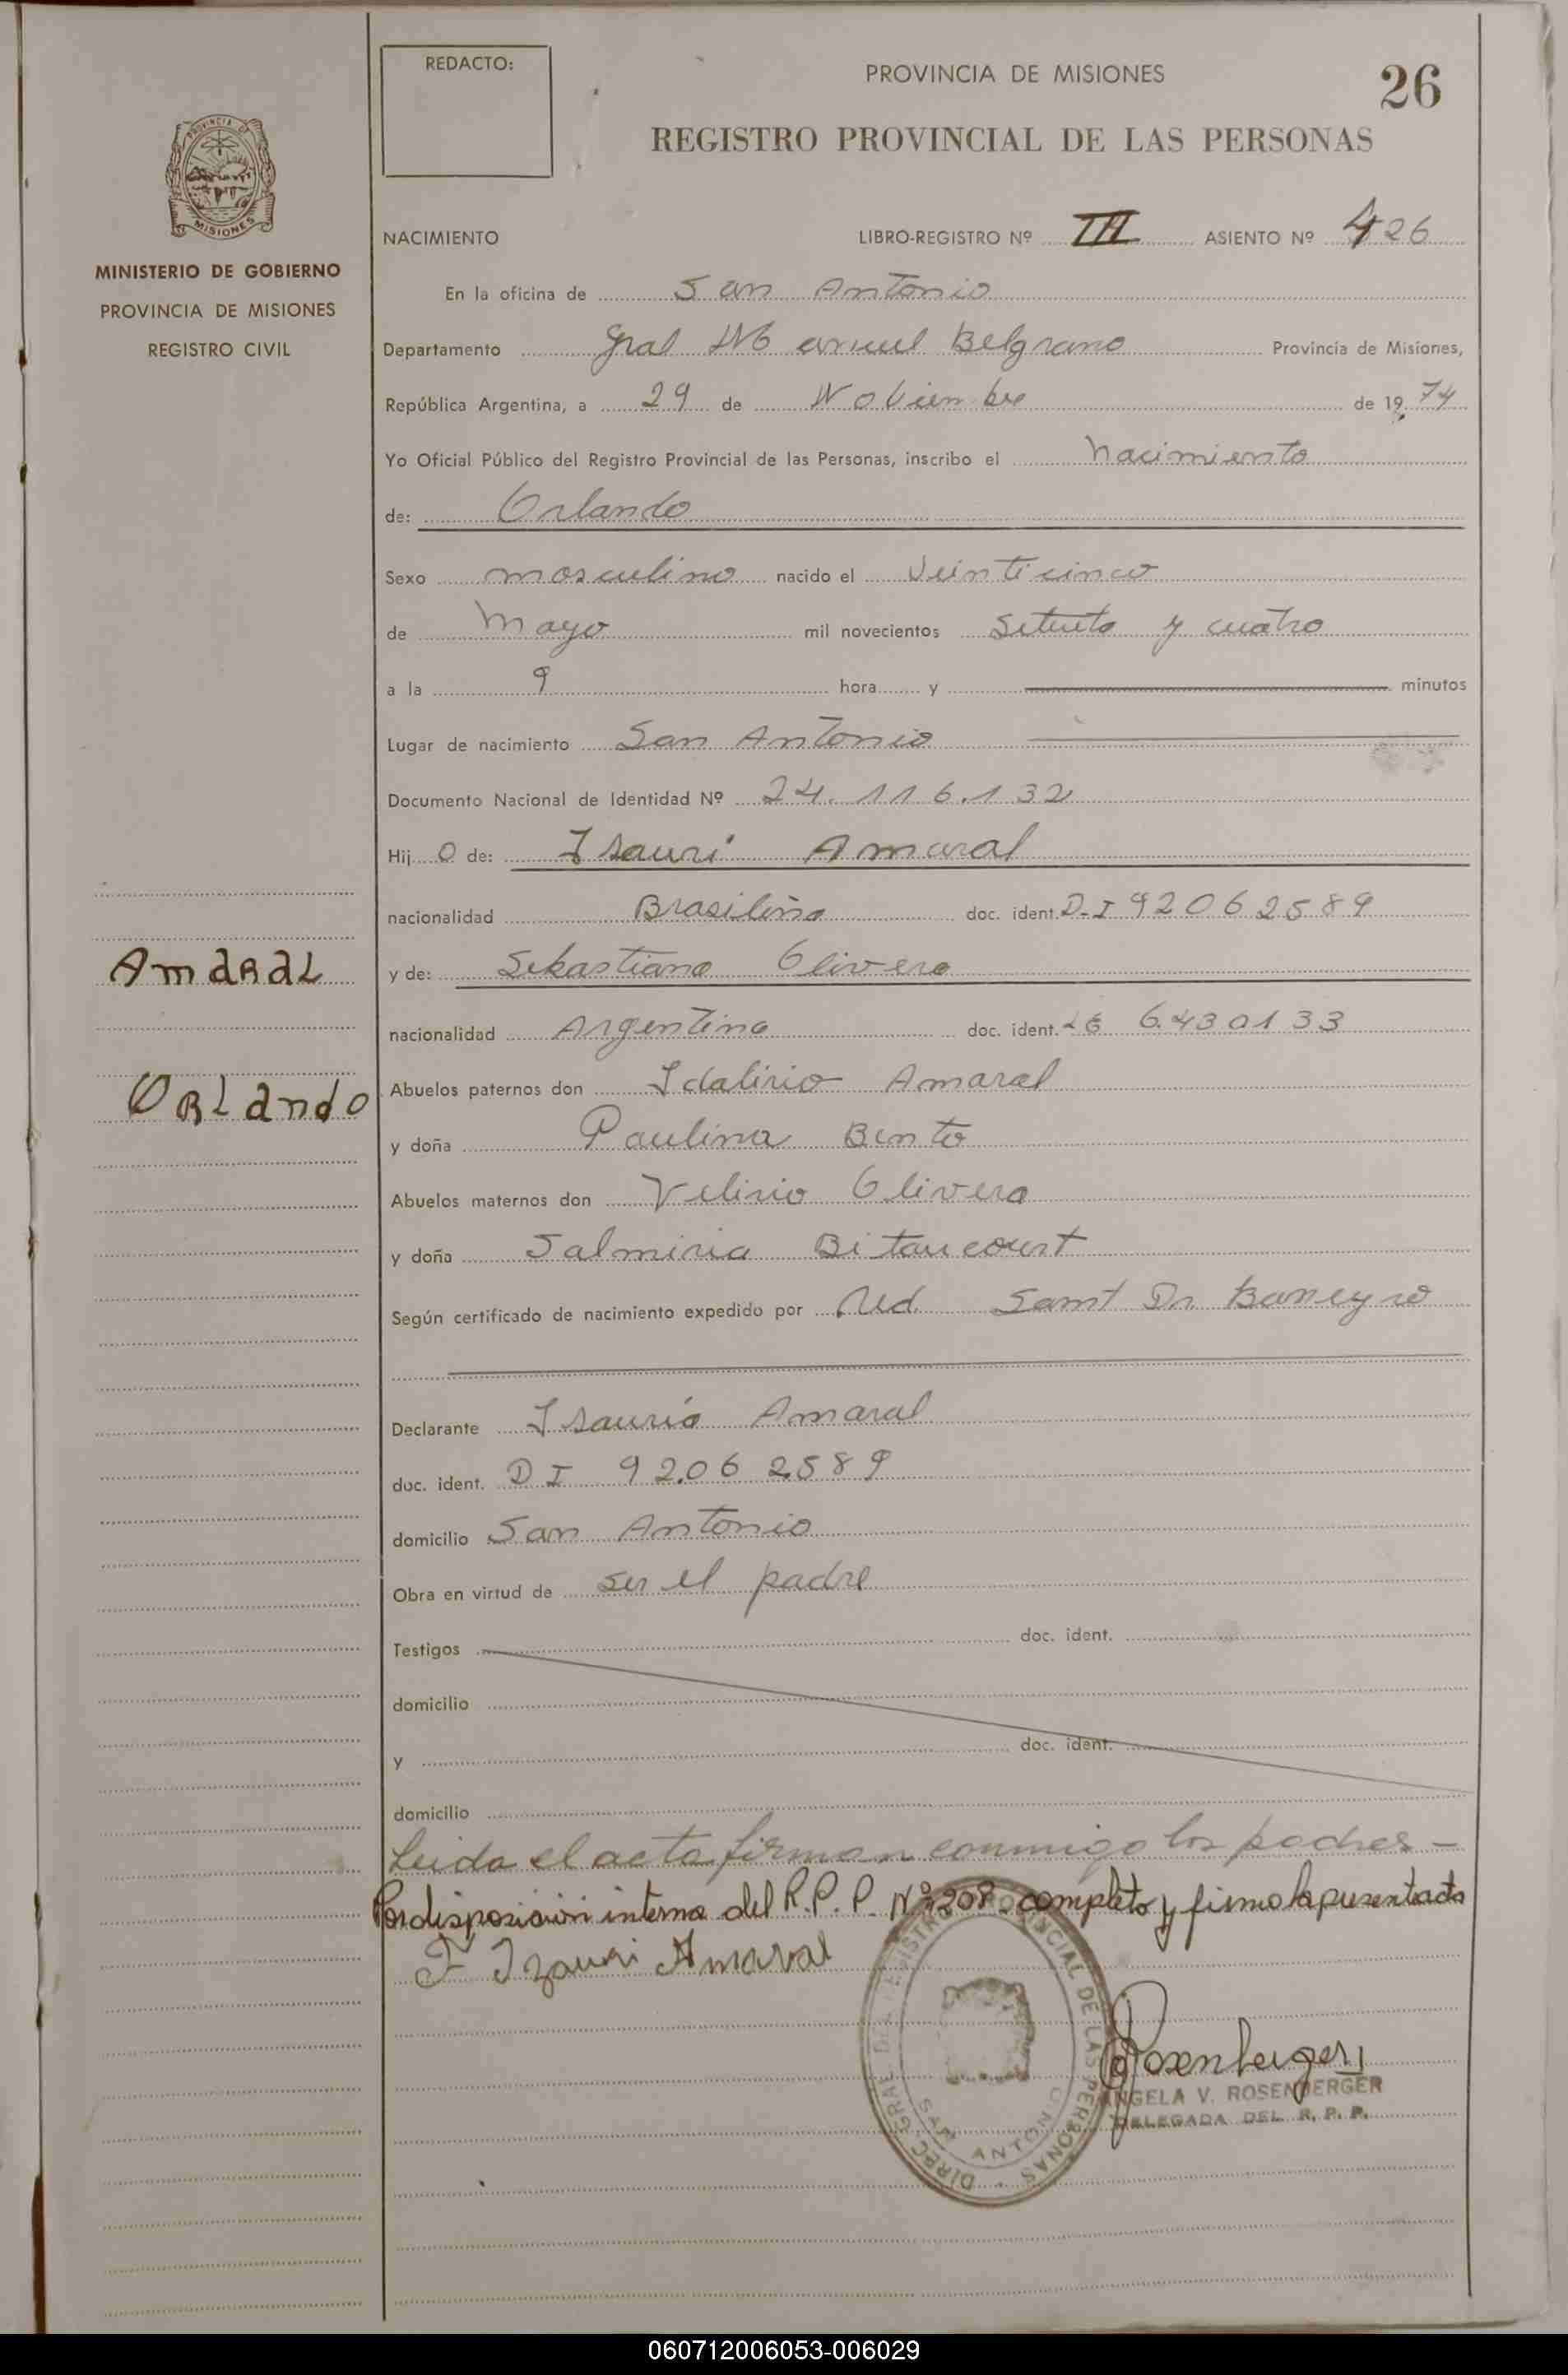 REDACTO:
PROVINCIA DE MISIONES
26
REGISTRO PROVINCIAL DE LAS PERSONAS
PROVINCIA DE
MISIONES
MINISTERIO DE GOBIERNO
PROVINCIA DE MISIONES
REGISTRO CIVIL
NACIMIENTO LIBRO-REGISTRO Nº III ASIENTO Nº 426
En la oficina de San Antonio
Departamento Gral Manuel Belgrano Provincia de Misiones,
República Argentina, a 29 de Nobiembre de 19 74
Yo Oficial Público del Registro Provincial de las Personas, inscribo el nacimiento
de: Orlando
Sexo masculino nacido el Veinticinco
de Mayo mil novecientos Setenta y cuatro
a la 9 hora y minutos
Lugar de nacimiento San Antonio
Documento Nacional de Identidad Nº 24.116.132
Hij o de: Isauri Amaral
nacionalidad Brasileña doc. ident. D-I 92062589
y de: Sebastiana Olivera
nacionalidad Argentina doc. ident. 6.430133
Abuelos paternos don Idalirio Amaral
y doña Paulina Bento
Abuelos maternos don Velirio Olivera
y doña Salmiria Bitancourt
Según certificado de nacimiento expedido por Med. Dr.
Declarante Isaurio Amaral
doc. ident. D I 92.062589
domicilio San Antonio
Obra en virtud de ser el padre
Testigos doc. ident.
domicilio
y doc. ident.
domicilio
Leida el acta firman conmigo los padres -
Por disposición interna del R.P.P. Nº 208 completo y firmo la presente acta
F Izauri Amaral
AMARAL
ORLANDO
DIREC. GRAL. DEL REGISTRO PROVINCIAL DE LAS PERSONAS
SAN ANTONIO
Rosenberger
ANGELA V. ROSENBERGER
DELEGADA DEL R. P. P.
060712006053-006029